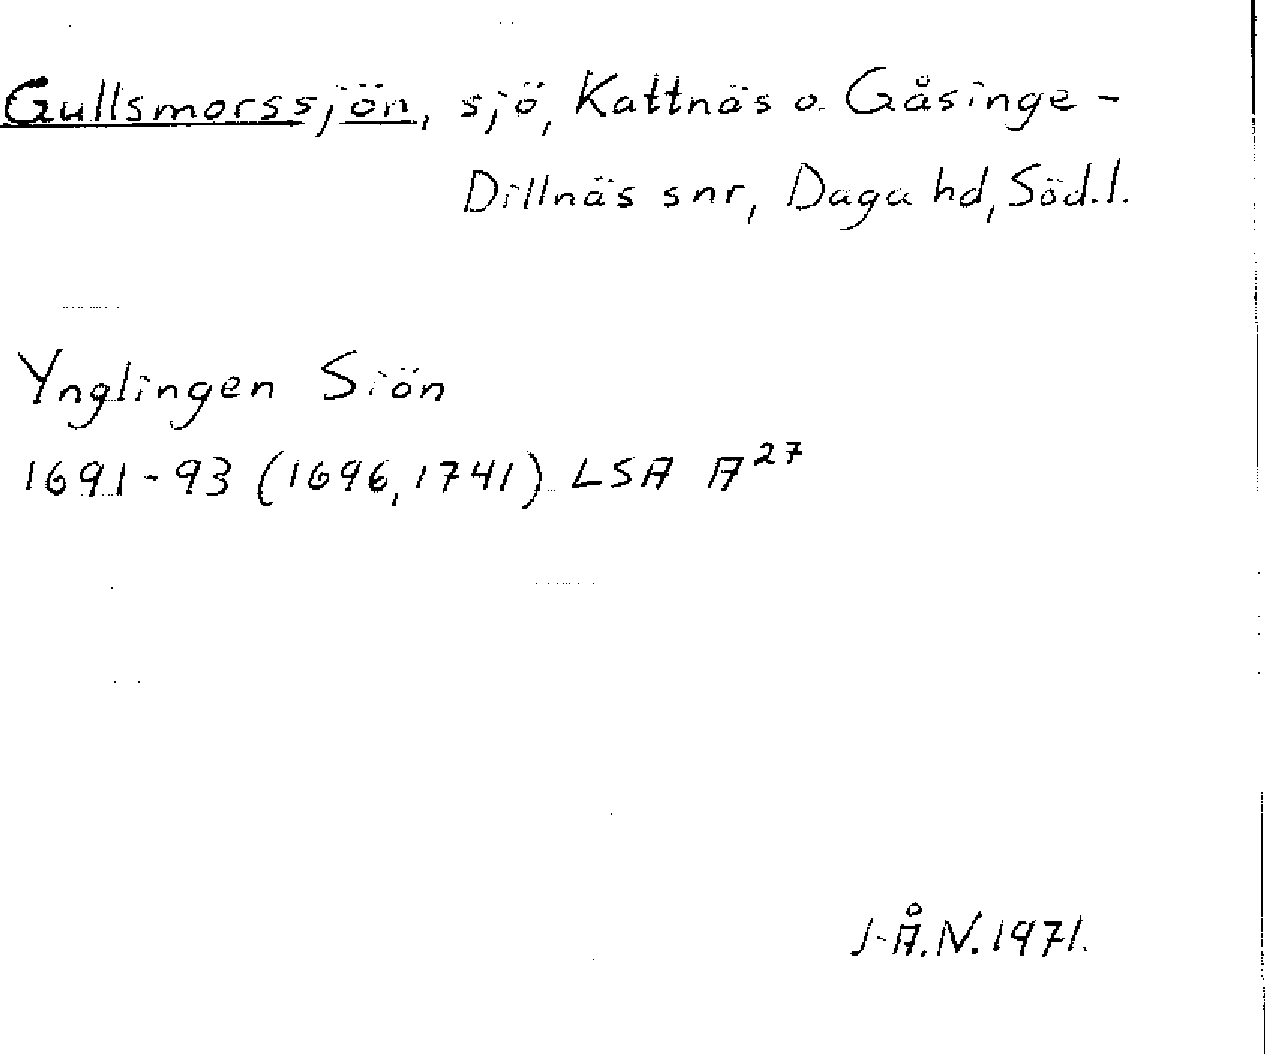 Gullsmorssjön, sjö, Kattnäs o. Gåsinge-
Dillnäs snr, Daga hd, Söd.l.
Ynglingen Siön
1691-93 (1696, 1741) LSA A27
J-Å.N. 1971.